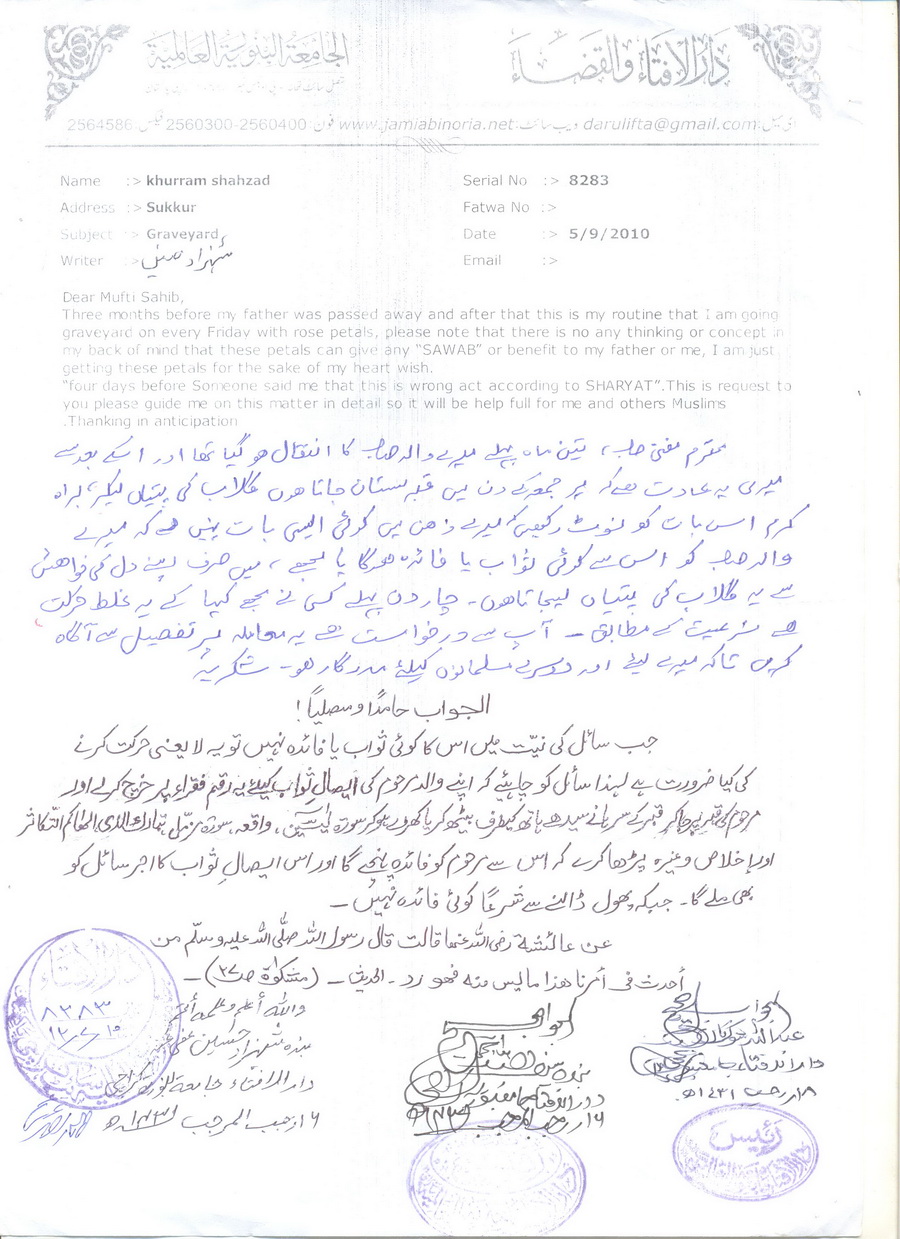 الجامعة البنورية العالمية
دار الافتاء والقضاء
2564586 :فیکس 2560300-2560400 :فون www.jamiabinoria.net :ویب سائٹ darulifta@gmail.com :ای میل
Name :> khurram shahzad
Address :> Sukkur
Subject :> Graveyard
Writer :> شہزاد حسین
Serial No :> 8283
Fatwa No :>
Date :> 5/9/2010
Email :>
Dear Mufti Sahib,
Three months before my father was passed away and after that this is my routine that I am going
graveyard on every Friday with rose petals, please note that there is no any thinking or concept in
my back of mind that these petals can give any "SAWAB" or benefit to my father or me, I am just
getting these petals for the sake of my heart wish.
"four days before Someone said me that this is wrong act according to SHARYAT".This is request to
you please guide me on this matter in detail so it will be help full for me and others Muslims
.Thanking in anticipation
محترم مفتی صاحب، تین ماہ پہلے میرے والد صاحب کا انتقال ہو گیا تھا اور اسکے بعد سے
میری یہ عادت ہے کہ ہر جمعہ کے دن میں قبرستان جاتا ہوں گلاب کی پتیاں لیکر، براہ
کرم اس بات کو نوٹ رکھیں کہ میرے ذہن میں کوئی ایسی بات نہیں ہے کہ میرے
والد صاحب کو اس سے کوئی ثواب یا فائدہ ہوگا یا مجھے، میں صرف اپنے دل کی خواہش
سے یہ گلاب کی پتیاں لیجاتا ہوں۔ چار دن پہلے کسی نے مجھے کہا کے یہ غلط حرکت
ہے شریعت کے مطابق ۔ آپ سے درخواست ہے یہ معاملہ پر تفصیل سے آگاہ
کریں تاکہ میرے لیئے اور دوسرے مسلمانوں کیلئے مددگار ہو۔ شکریہ
الجواب حامدًا و مصلیًا!
جب سائل کی نیّت میں اس کا کوئی ثواب یا فائدہ نہیں تو یہ لا یعنی حرکت کرنے
کی کیا ضرورت ہے لہذا سائل کو چاہئیے کہ اپنے والد مرحوم کی ایصال ثواب کیلئے یہ رقم فقراء پر خرچ کرلے اور
مرحوم کی قبر پر جاکر قبر کے سرہانے سیدھے ہاتھ کیطرف بیٹھ کر یا کھڑے ہوکر سورۃ یٰسین، واقعہ، سورۃ مزمل، تبارک الذی، الھاکم التکاثر
اور اخلاص وغیرہ پڑھا کرے کہ اس سے مرحوم کو فائدہ پہنچے گا اور اس ایصالِ ثواب کا اجر سائل کو
بھی ملے گا۔ جبکہ پھول ڈالنے سے شرعًا کوئی فائدہ نہیں۔
عن عائشة رضی اللہ عنہا قالت قال رسول اللہ صلّی اللہ علیہ وسلّم من
أحدث فی أمرنا ھذا مالیس منہ فھو رد۔ الحدیث ۔ (مشکوٰۃ ص٢٧)۔
واللہ أعلم وعلمہ أتم
بندہ شہزاد حسین عفی عنہ
دار الافتاء جامعہ بنوریہ کراچی
١٦ رجب المرجب ١٤٣١ھ
دار الافتاء
٨٢٨٣
الجواب صحیح
دار الافتاء جامعہ بنوریہ
١٦ رجب المرجب
الجواب صحیح
عبداللہ شوکت
دار الافتاء جامعہ بنوریہ
١٨ رجب ١٤٣١ھ
رئیس